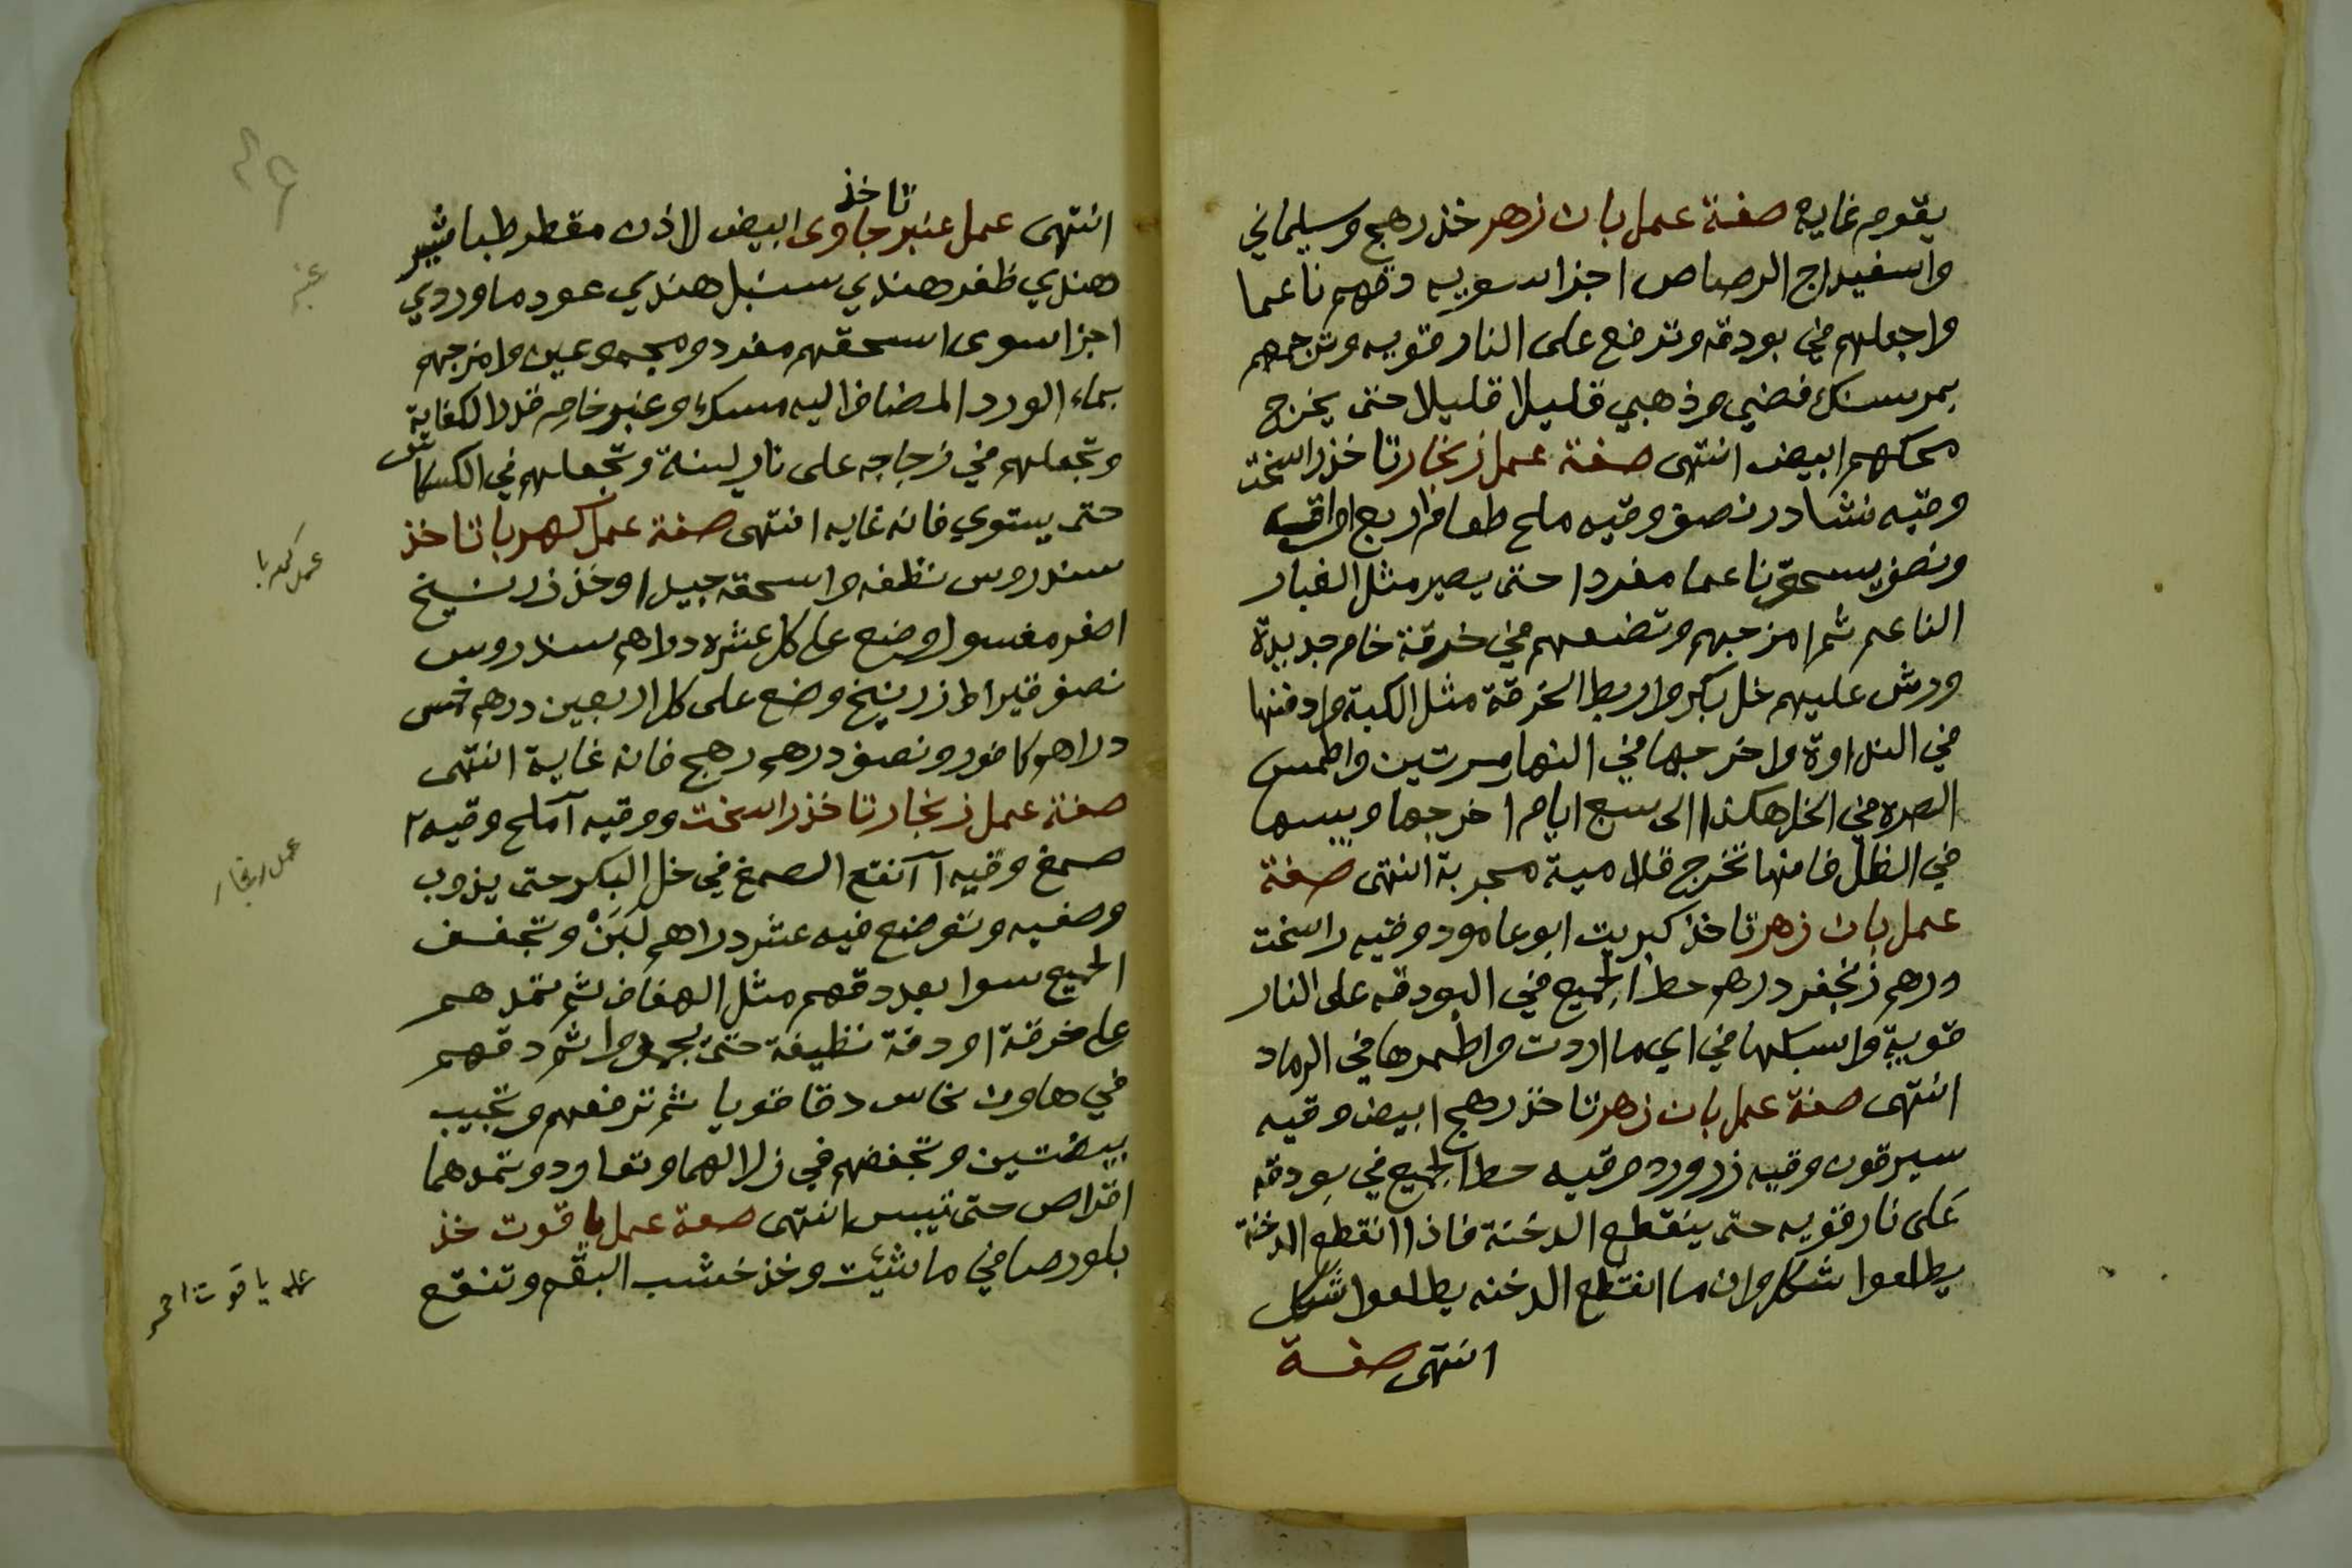 يقوم غايه صفة عمل بان زهر خذ رهج وسليماني
واسفيداج الرصاص اجزا سويه دقهم ناعما
واجعلهم في بودقه وترفع على النار قويه وترجمهم
بمرسنك فضي وذهبي قليلا قليلا حتى يخرج
محكهم ابيض انتهى صفة عمل زنجار تاخذ راسخت
وقيه نشادر نصف وقيه ملح طعام اربع اواقيه
ونصف يسحق ناعما مفردا حتى يصير مثل الغبار
الناعم ثم امزجهم وتضعهم في خرقة خام جديدة
ورش عليهم خل بكر واربط الخرقة مثل الكبة وادفنها
في النداوة واخرجها في النهار مرتين واطمس
الصره في الخل هكذا الى سبع ايام اخرجها ويبسها
في الظل فانها تخرج قلامية مجربة انتهى صفة
عمل بان زهر تاخذ كبريت ابو عامود وقيه راسخت
درهم زنجفر درهم حط الجميع في البودقه على النار
قوية واسبكها في اي ما اردت واطمرها في الرماد
انتهى صفة عمل بان زهر تاخذ رهج ابيض وقيه
سيرقون وقيه زرورد وقيه حط الجميع في بودقه
على نار قويه حتى ينقطع الدخنة فاذا انقطع الدخنة
يطلعوا شكل وان ما انقطع الدخنه يطلعوا شكل
انتهى صفة
تاخذ
انتهى عمل عنبر جاوى ابيض لاذن مقطر طباشير
هندي ظفر هندي سنبل هندي عود ماوردي
اجزا سوى اسحقهم مفرد ومجموعين وامزجهم
بماء الورد المضاف اليه مسك وعنبر خام قدر الكفاية
وتجعلهم في زجاجه على نار لينة وتجعلهم في الكسكاس
حتى يستوي فانه غايه انتهى صفة عمل كهربا تاخذ
سندروس نظفه واسحقه جيدا وخذ زرنيخ
اصفر مغسول وضع على كل عشره دراهم سندروس
نصف قيراط زرنيخ وضع على كل اربعين درهم خمس
دراهم كافور ونصف درهم رهج فانه غاية انتهى
صفة عمل زنجار تاخذ راسخت ووقيه ١ ملح وقيه ٢
صمغ وقيه ١ انقع الصمغ في خل البكر حتى يذوب
وصفيه وتوضع فيه عشر دراهم لبن وتجفف
الجميع سوا بعد دقهم مثل الهفاف ثم تمدهم
على خرقة او دفة نظيفة حتى يجمدوا ثم دقهم
في هاون نحاس دقا قويا ثم ترفعهم وتجيب
بيضتين وتخفضهم في زلالهما وتعاود وتمدهما
اقراص حتى تيبس انتهى صفة عمل ياقوت خذ
بلور صافي ما شئت وخذ خشب البقم وتنقع
عنبر
عمل كهربا
عمل زنجار
عمل ياقوت احمر